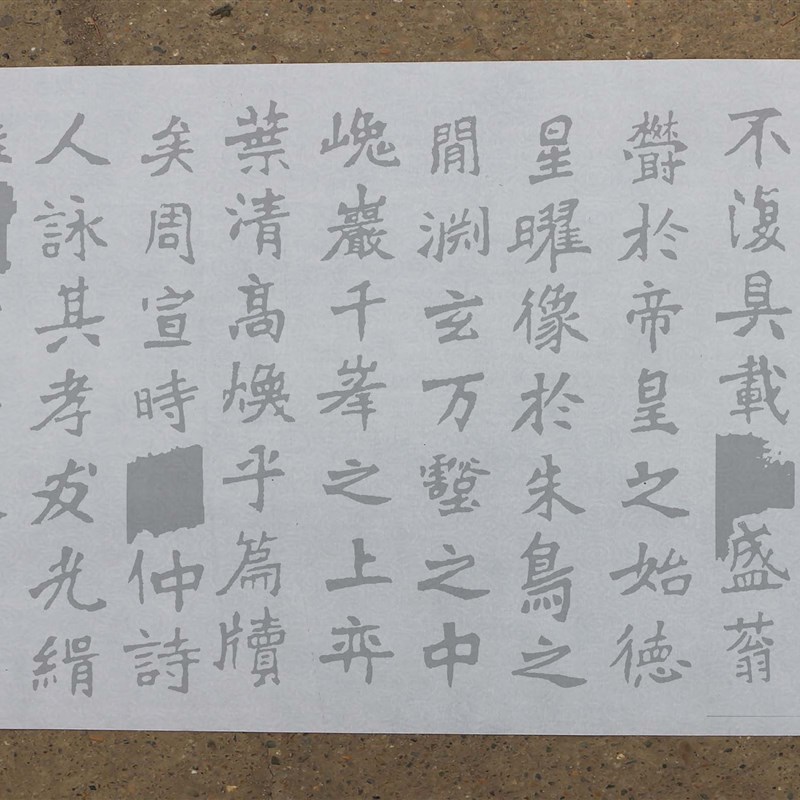 不復具載盛蓊
欝於帝皇之始德
星曜像於朱鳥之
閒渊玄万壑之中
巉巖千峯之上弈
葉清高煥乎篇牘
矣周宣時仲詩
人詠其孝友光緝